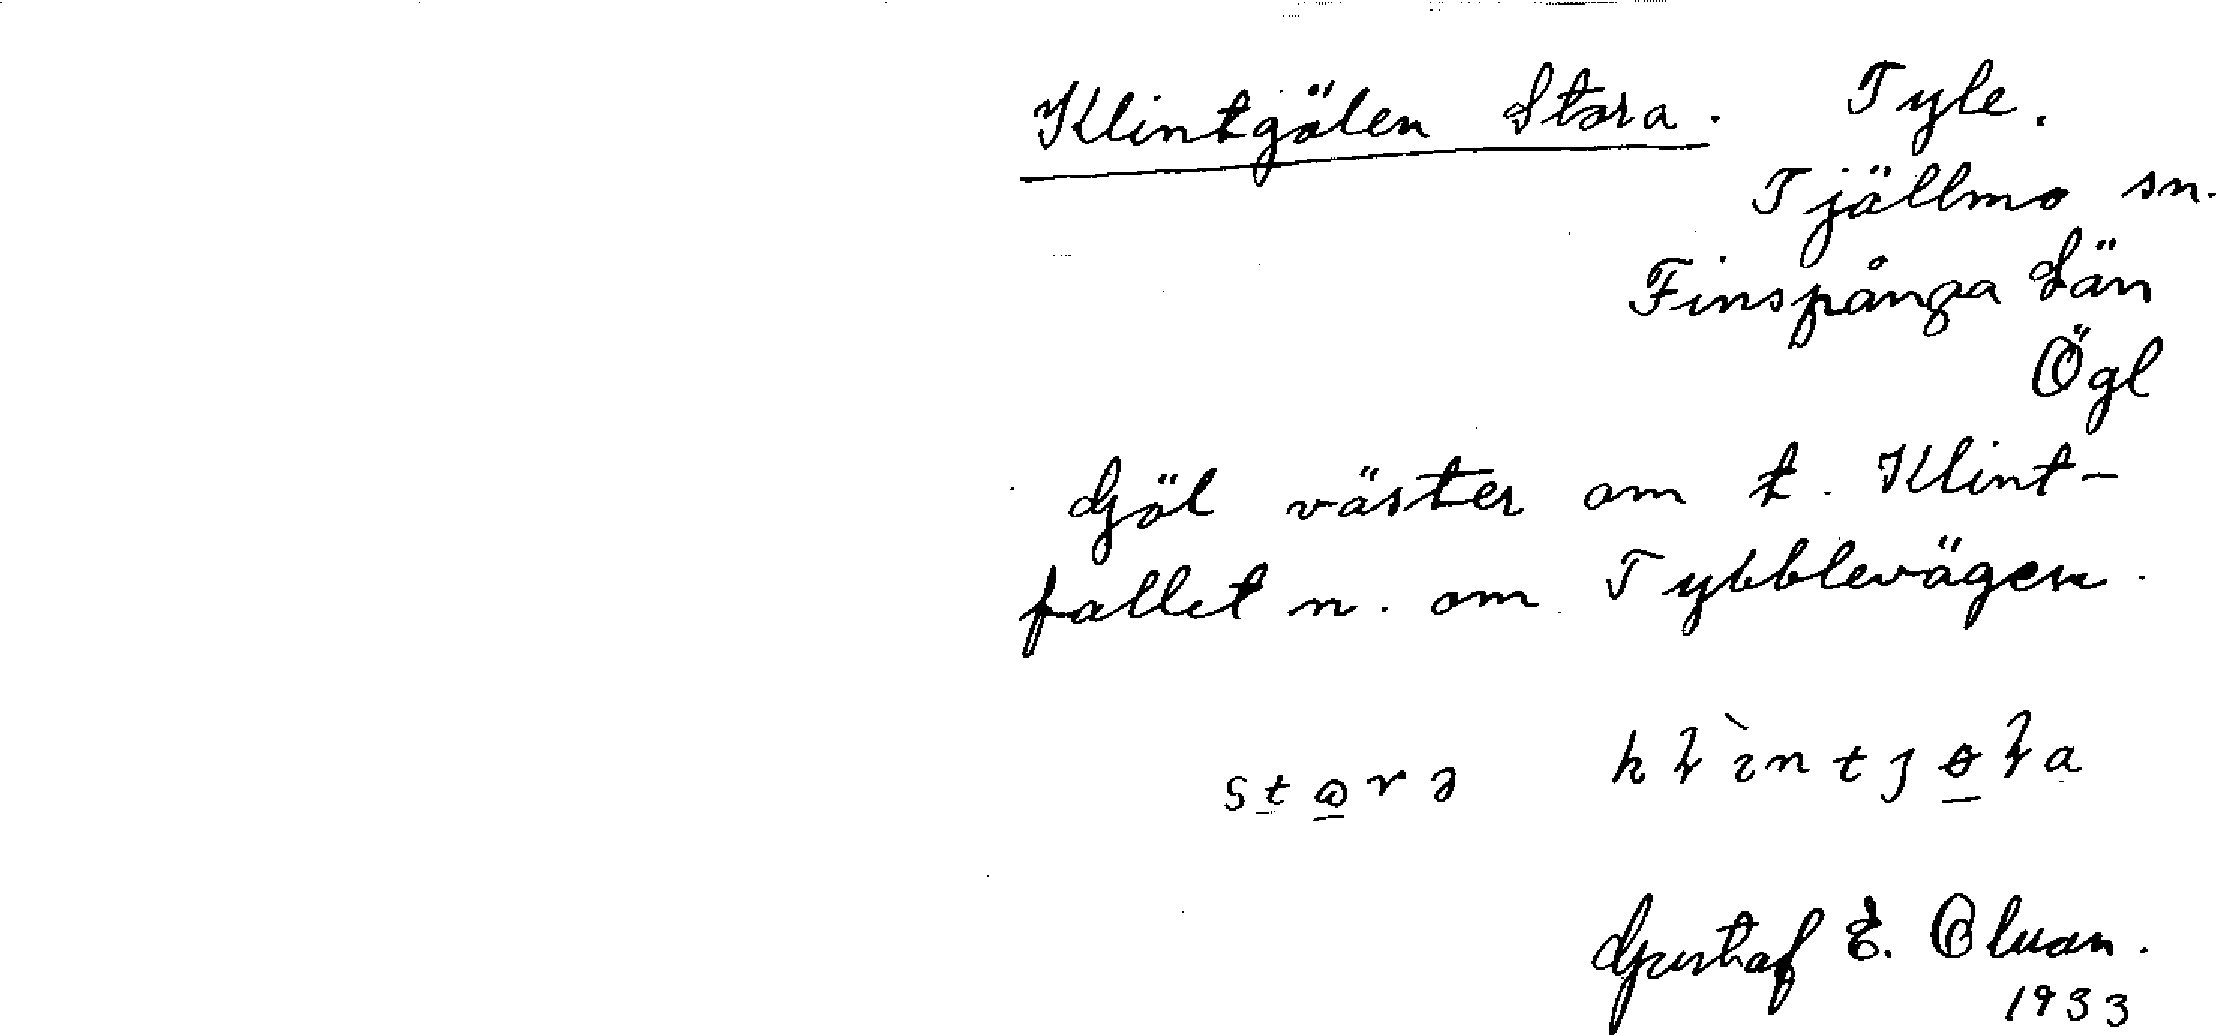 Klintgölen Stora. Tyle.
Tjällmo sn.
Finspånga Län
Ögl
Göl väster om t. Klint-
fallet n. om Tybblevägen.
Gustaf E. Olsson.
1933